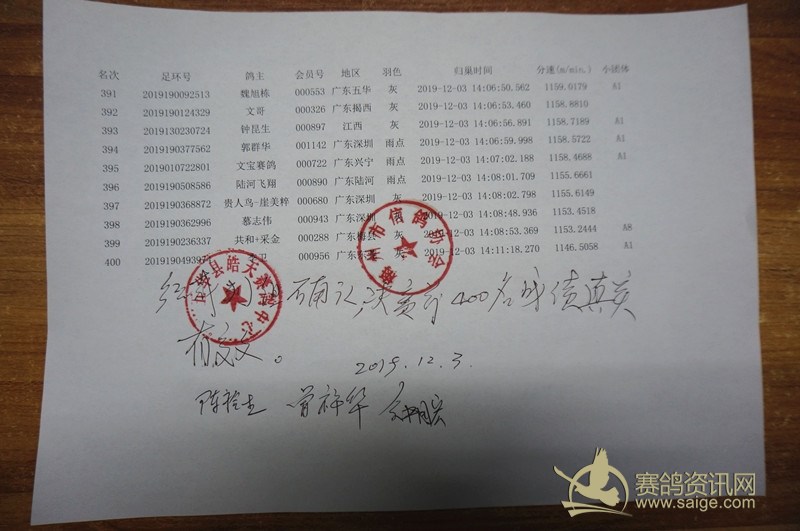 名次 足环号 鸽主 会员号 地区 羽色 归巢时间 分速(m/min.) 小团体
391 2019190092513 魏旭栋 000553 广东五华 灰 2019-12-03 14:06:50.562 1159.0179 A1
392 2019190124329 文哥 000326 广东揭西 灰 2019-12-03 14:06:53.460 1158.8810
393 2019130230724 钟昆生 000897 江西 灰 2019-12-03 14:06:56.891 1158.7189 A1
394 2019190377562 郭群华 001142 广东深圳 雨点 2019-12-03 14:06:59.998 1158.5722 A1
395 2019010722801 文宝赛鸽 000722 广东兴宁 雨点 2019-12-03 14:07:02.188 1158.4688 A1
396 2019190508586 陆河飞翔 000890 广东陆河 雨点 2019-12-03 14:08:01.709 1155.6661
397 2019190368872 贵人鸟-崖美粹 000680 广东深圳 灰 2019-12-03 14:08:02.798 1155.6149
398 2019190362996 慕志伟 000943 广东深圳 2019-12-03 14:08:48.936 1153.4518
399 2019190236337 共和+采金 000288 广东梅县 灰 2019-12-03 14:08:53.369 1153.2444 A8
400 201919049397 卫 000956 广东 2019-12-03 14:11:18.270 1146.5058 A1
确认决赛前400名成绩真实
有效。
2019.12.3.
赛鸽资讯网
www.saige.com